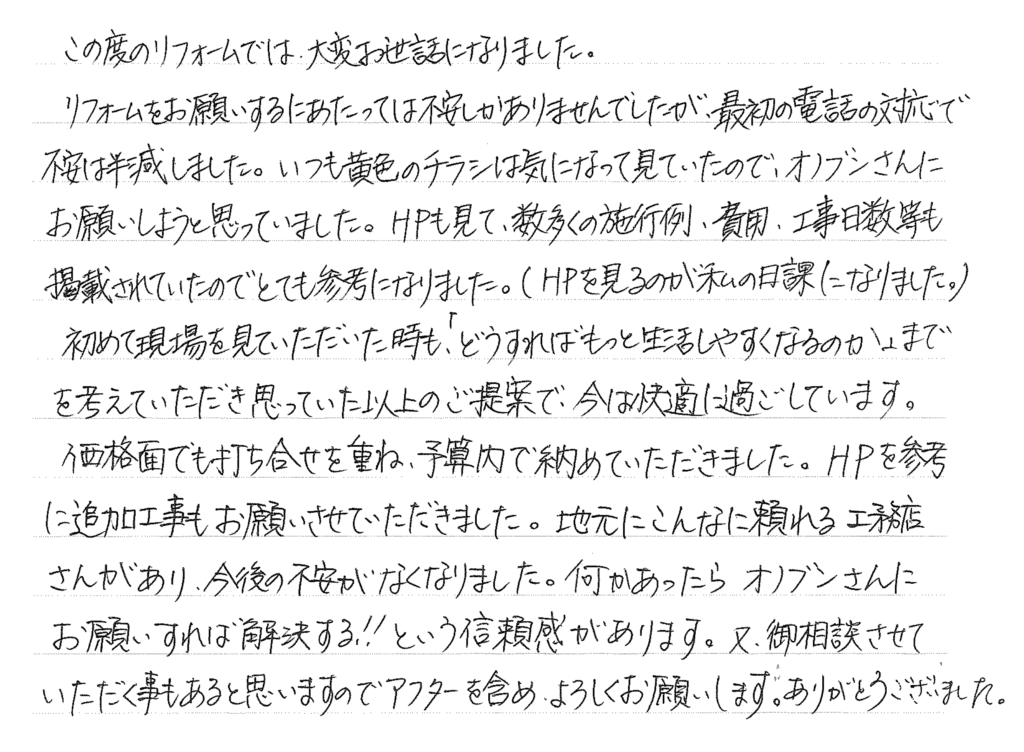 この度のリフォームでは、大変お世話になりました。
リフォームをお願いするにあたっては不安しかありませんでしたが、最初の電話の対応で
不安は半減しました。いつも黄色のチラシは気になって見ていたので、オノブンさんに
お願いしようと思っていました。HPも見て、数多くの施行例、費用、工事日数等も
掲載されていたのでとても参考になりました。(HPを見るのが私の日課になりました。)
初めて現場を見ていただいた時も、「どうすればもっと生活しやすくなるのか」まで
を考えていただき思っていた以上のご提案で、今は快適に過ごしています。
価格面でも打ち合せを重ね、予算内で納めていただきました。HPを参考
に追加工事もお願いさせていただきました。地元にこんなに頼れる工務店
さんがあり、今後の不安がなくなりました。何かあったらオノブンさんに
お願いすれば解決する!!という信頼感があります。又、御相談させて
いただく事もあると思いますのでアフターを含め、よろしくお願いします。ありがとうございました。